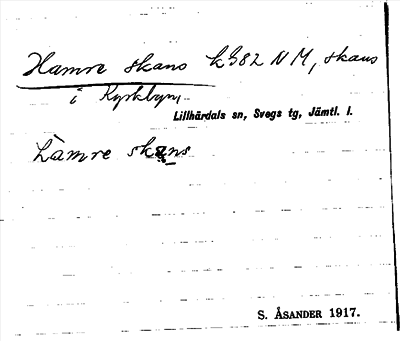 Hamre skans k982 NM, skans
i Kyrkbyn,
Lillhärdals sn, Svegs tg, Jämtl. l.
hàmre skans
S. ÅSANDER 1917.